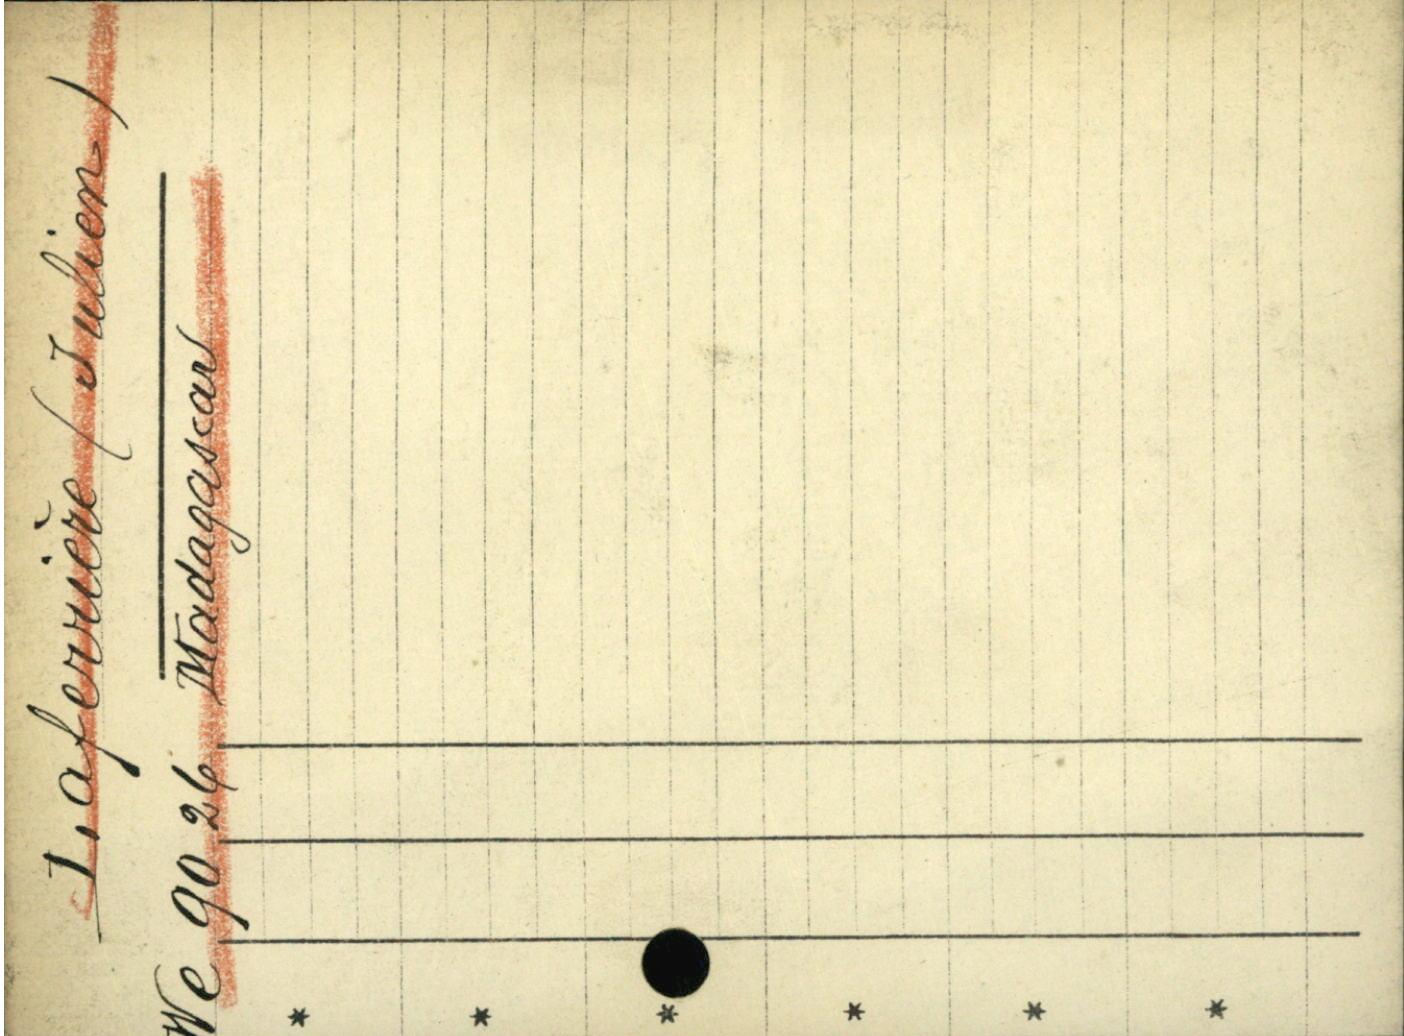 Laferrière (Julien)
We 90 26 Madagascar